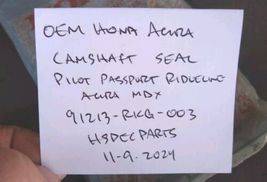 OEM HONDA ACURA
CAMSHAFT SEAL
PILOT PASSPORT RIDGELINE
ACURA MDX
91213-RKG-003
HSPECPARTS
11-9.2024